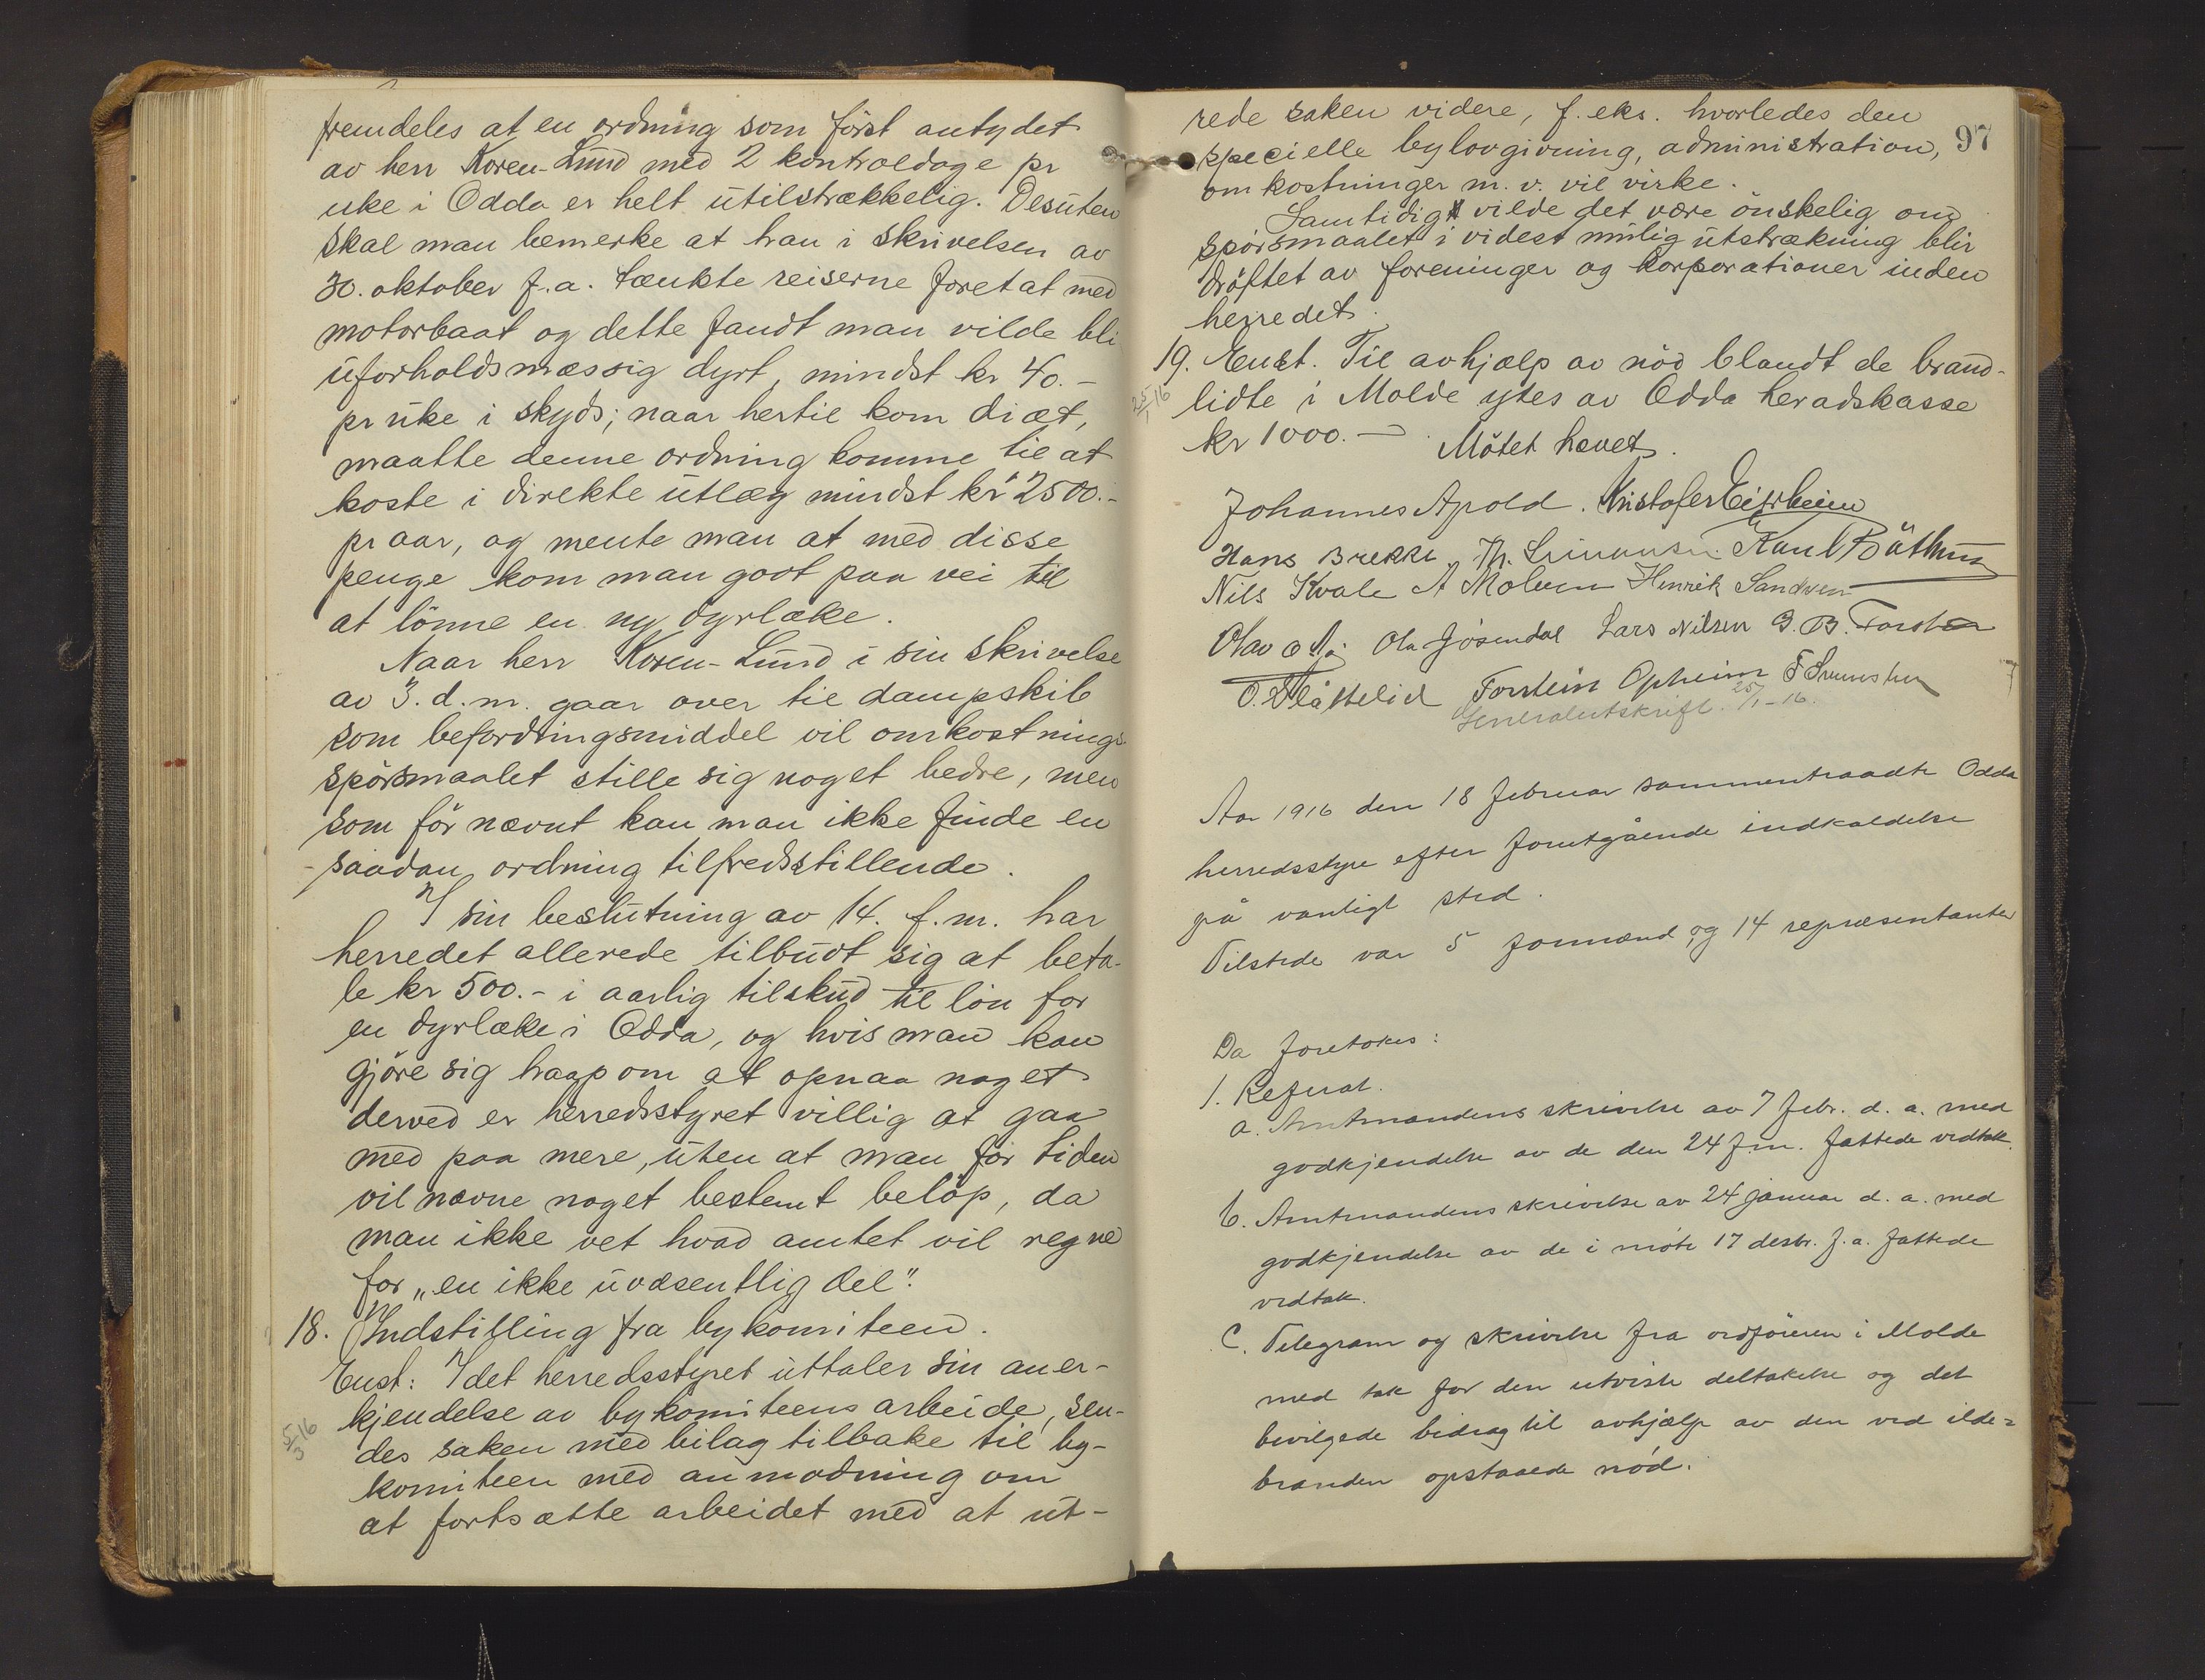 fremdeles at en ordning som först antydet
av herr Koren-Lund med 2 kontroldage pr
uke i Odda er helt utilstrækkelig. Desuten
skal man bemerke at han i skrivelsen av
30. oktober f.a. tænkte reiserne foretat med
motorbaat og dette fandt man vilde bli
uforholdsmæssig dyrt, mindst kr 40.-
pr uke i skyds; naar hertil kom diæt,
maatte denne ordning komme til at
koste i direkte utlæg mindst kr 2500.-
pr aar, og mente man at med disse
penge kom man godt paa vei til
at lönne en ny dyrlæke.
Naar herr Koren-Lund i sin skrivelse
av 3. d.m. gaar over til dampskib
som befordringsmiddel vil omkostnings-
spörsmaalet stille sig noget bedre, men
som för nævnt kan man ikke finde en
saadan ordning tilfredsstillende.
I sin beslutning av 14. f.m. har
herredet allerede tilbudt sig at beta-
le kr 500.- i aarlig tilskud til lön for
en dyrlæke i Odda, og hvis man kan
gjöre sig haap om at opnaa noget
derved er herredsstyret villig at gaa
med paa mere, uten at man for tiden
vil nævne noget bestemt belöp, da
man ikke vet hvad amtet vil regne
for „en ikke uvæsentlig del".
18. Indstilling fra bykomiteen.
Enst: Idet herredsstyret uttaler sin aner-
kjendelse av bykomiteens arbeide, sen-
5/3 16
des saken med bilag tilbake til by-
komiteen med anmodning om
at fortsætte arbeidet med at ut-
97
rede saken videre, f. eks. hvorledes den
specielle bylovgivning, administration,
omkostninger m. v. vil virke.
Samtidig vilde det være önskelig om
spörsmaalet i videst mulig utstrækning blir
dröftet av foreninger og korporationer inden
herredet.
19. Enst. Til avhjælp av nöd blandt de brand-
25/1 16
lidte i Molde ytes av Odda heradskasse
kr 1000.- Mötet hævet.
Johannes Apold. Kristofer Eitrheim
Hans Brekke Th. Simonsen Karl Båthun
Nils Kvale A Molven Henrik Sandven
Olav Ola Jösendal Lars Nilsen G. B.
O. Slåttelid Torstein Opheim
Generalutskrift 25/1-16.
Aar 1916 den 18 februar sammentraadte Odda
herredsstyre efter forutgående indkaldelse
på vanligt sted.
Tilstede var 5 formænd og 14 repræsentanter
Da foretokes:
1. Referat.
a. Amtmandens skrivelse av 7 febr. d. a. med
godkjendelse av de den 24 f.m. fattede vedtak.
b. Amtmandens skrivelse av 24 januar d. a. med
godkjendelse av de i möte 17 desbr. f. a. fattede
vedtak.
C. Telegram og skrivelse fra ordföreren i Molde
med tak for den utviste deltakelse og det
bevilgede bidrag til avhjælp av den ved ilde=
branden opstaaede nöd.